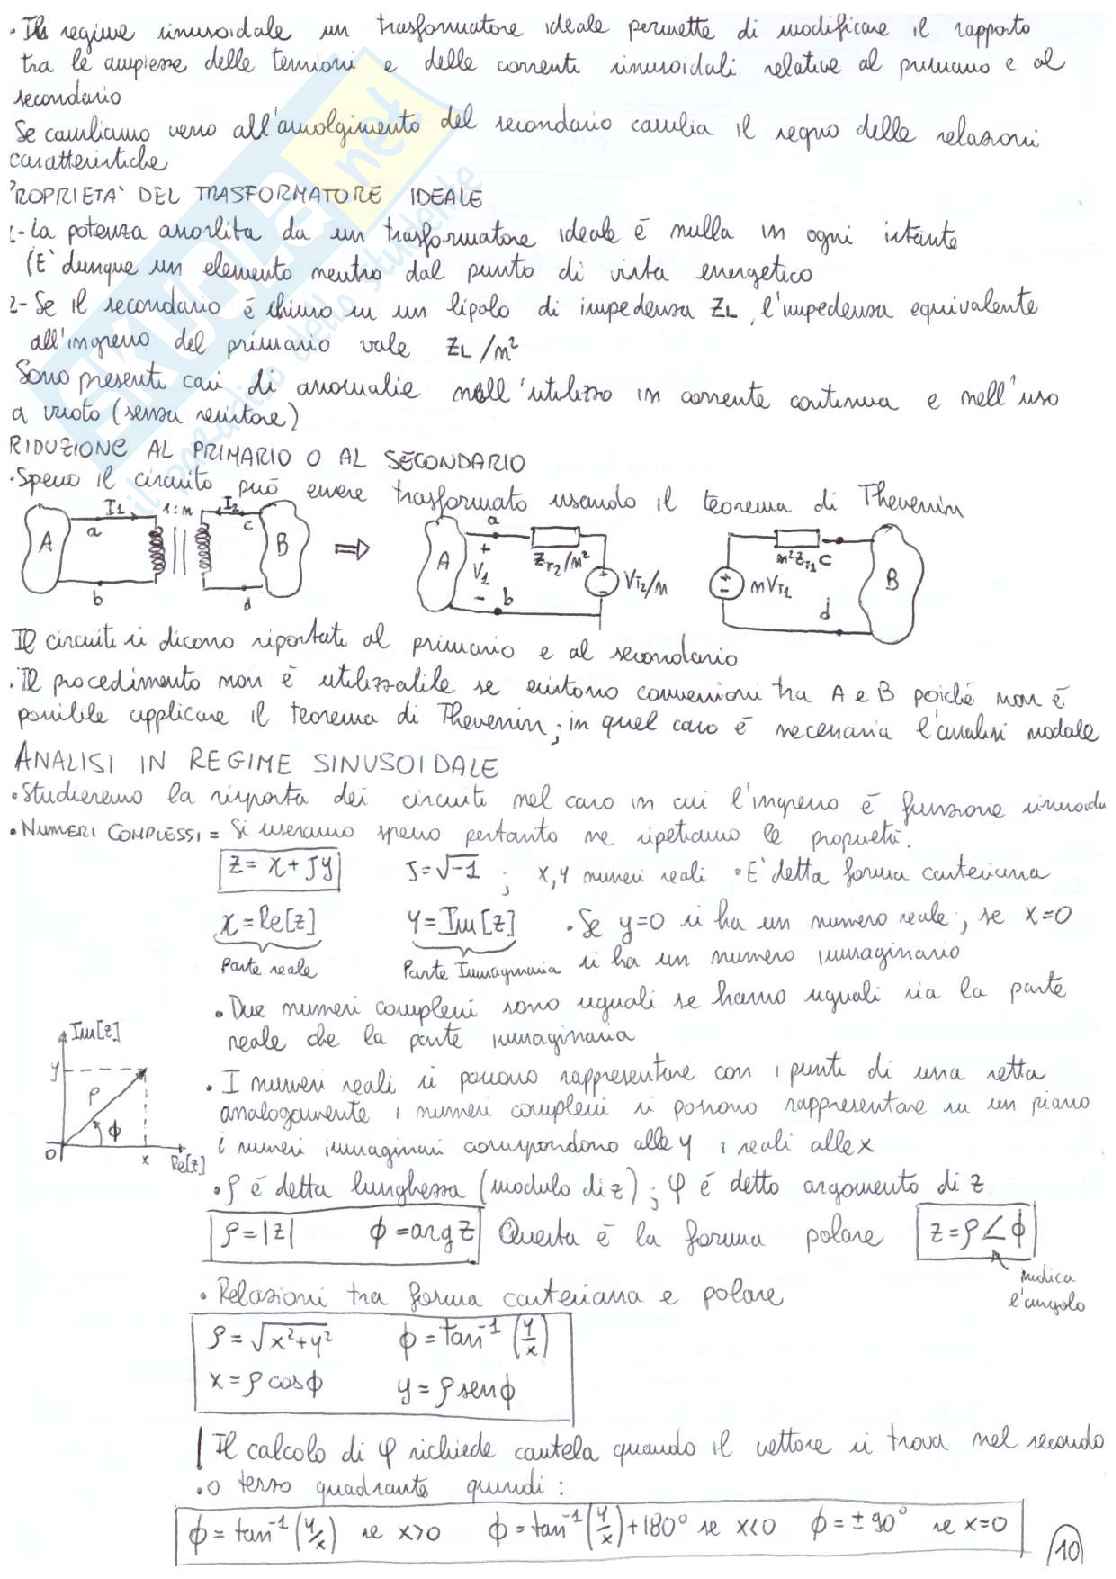 • In regime sinusoidale un trasformatore ideale permette di modificare il rapporto
tra le ampiezze delle tensioni e delle correnti sinusoidali relative al primario e al
secondario
Se cambiamo verso all'avvolgimento del secondario cambia il segno delle relazioni
caratteristiche
PROPRIETA' DEL TRASFORMATORE IDEALE
1- La potenza assorbita da un trasformatore ideale è nulla in ogni istante
(E' dunque un elemento neutro dal punto di vista energetico
2- Se il secondario è chiuso su un bipolo di impedenza ZL, l'impedenza equivalente
all'ingresso del primario vale ZL/n²
Sono presenti casi di anomalie nell'utilizzo in corrente continua e nell'uso
a vuoto (senza resistore)
RIDUZIONE AL PRIMARIO O AL SECONDARIO
• Spesso il circuito può essere trasformato usando il teorema di Thevenin
A I1 a b 1:n I2 c d B ⇒ A a + V1 - b ZT2/n² VT2/n nVT1 n²ZT1 c d B
Il circuiti si dicono riportati al primario e al secondario
• Il procedimento non è utilizzabile se esistono connessioni tra A e B poiché non è
possibile applicare il teorema di Thevenin; in quel caso è necessaria l'analisi nodale
ANALISI IN REGIME SINUSOIDALE
• Studieremo la risposta dei circuiti nel caso in cui l'ingresso è funzione sinusoida
• NUMERI COMPLESSI = Si useranno spesso pertanto ne ripetiamo le proprietà.
z = x + Jy J = √-1 ; x, y numeri reali • E' detta forma cartesiana
x = Re[z] y = Im[z] • Se y=0 si ha un numero reale; se x=0
Parte reale Parte Immaginaria si ha un numero immaginario
• Due numeri complessi sono uguali se hanno uguali sia la parte
reale che la parte immaginaria
Im[z] y ρ ϕ 0 x Re[z]
• I numeri reali si possono rappresentare con i punti di una retta
analogamente i numeri complessi si possono rappresentare su un piano
i numeri immaginari corrispondono alle y i reali alle x
• ρ è detta lunghezza (modulo di z); φ è detto argomento di z
ρ = |z| ϕ = arg z Questa è la forma polare z = ρ∠ϕ
indica
l'angolo
• Relazioni tra forma cartesiana e polare
ρ = √x²+y² ϕ = tan⁻¹(y/x)
x = ρ cosϕ y = ρ senϕ
Il calcolo di φ richiede cautela quando il vettore si trova nel secondo
• o terzo quadrante quindi:
ϕ = tan⁻¹(y/x) se x>0 ϕ = tan⁻¹(y/x)+180° se x<0 ϕ = ±90° se x=0
10
skuola.net
il paradiso dello studente